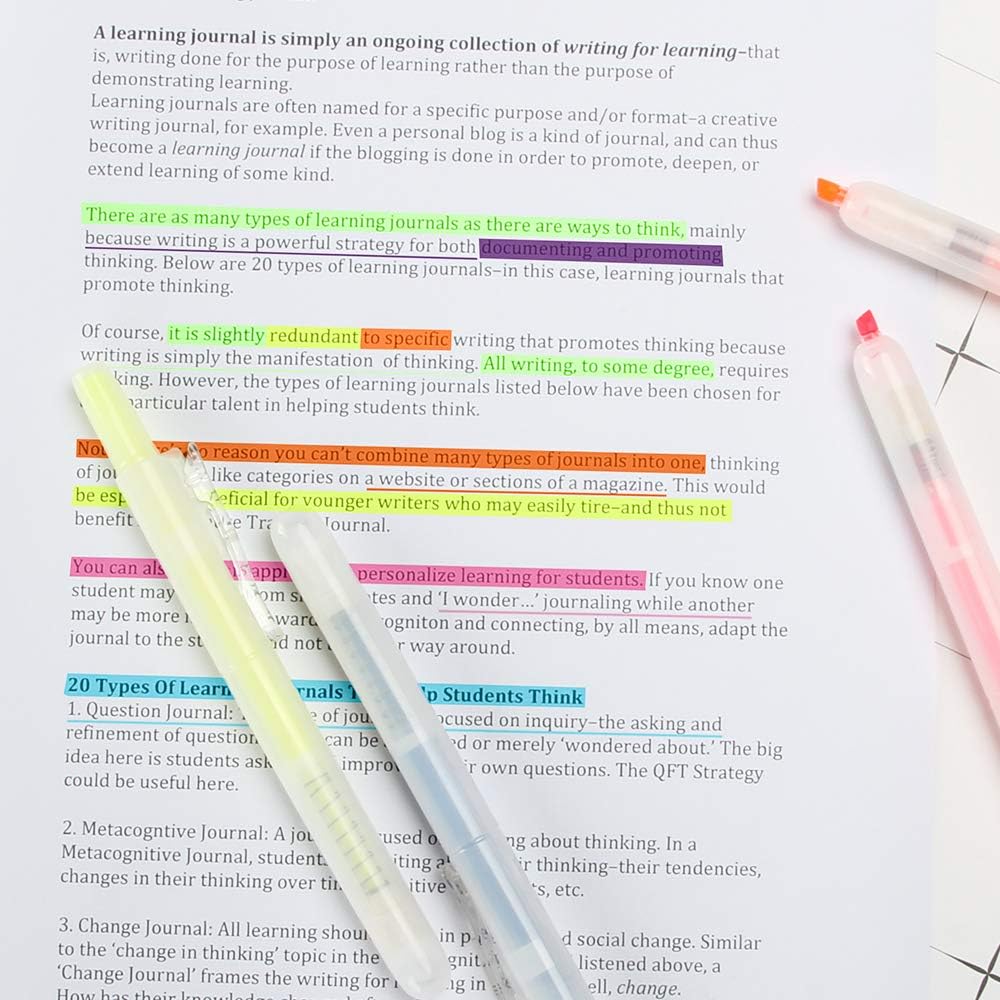 A learning journal is simply an ongoing collection of writing for learning–that
is, writing done for the purpose of learning rather than the purpose of
demonstrating learning.
Learning journals are often named for a specific purpose and/or format–a creative
writing journal, for example. Even a personal blog is a kind of journal, and can thus
become a learning journal if the blogging is done in order to promote, deepen, or
extend learning of some kind.
There are as many types of learning journals as there are ways to think, mainly
because writing is a powerful strategy for both documenting and promoting
thinking. Below are 20 types of learning journals–in this case, learning journals that
promote thinking.
Of course, it is slightly redundant to specific writing that promotes thinking because
writing is simply the manifestation of thinking. All writing, to some degree, requires
However, the types of learning journals listed below have been chosen for
particular talent in helping students think.
reason you can't combine many types of journals into one, thinking
of like categories on a website or sections of a magazine. This would
be for younger writers who may easily tire–and thus not
benefit Journal.
You can personalize learning for students. If you know one
student may and 'I wonder...' journaling while another
may be more recogniton and connecting, by all means, adapt the
journal to the not way around.
20 Types Of Students Think
1. Question Journal: of focused on inquiry–the asking and
refinement of can be or merely 'wondered about.' The big
idea here is students own questions. The QFT Strategy
could be useful here.
2. Metacogntive Journal: A about thinking. In a
Metacognitive Journal, thinking–their tendencies,
changes in their thinking over etc.
3. Change Journal: All learning in social change. Similar
to the 'change in thinking' topic in the listened above, a
'Change Journal' frames the writing for in change.
How has their